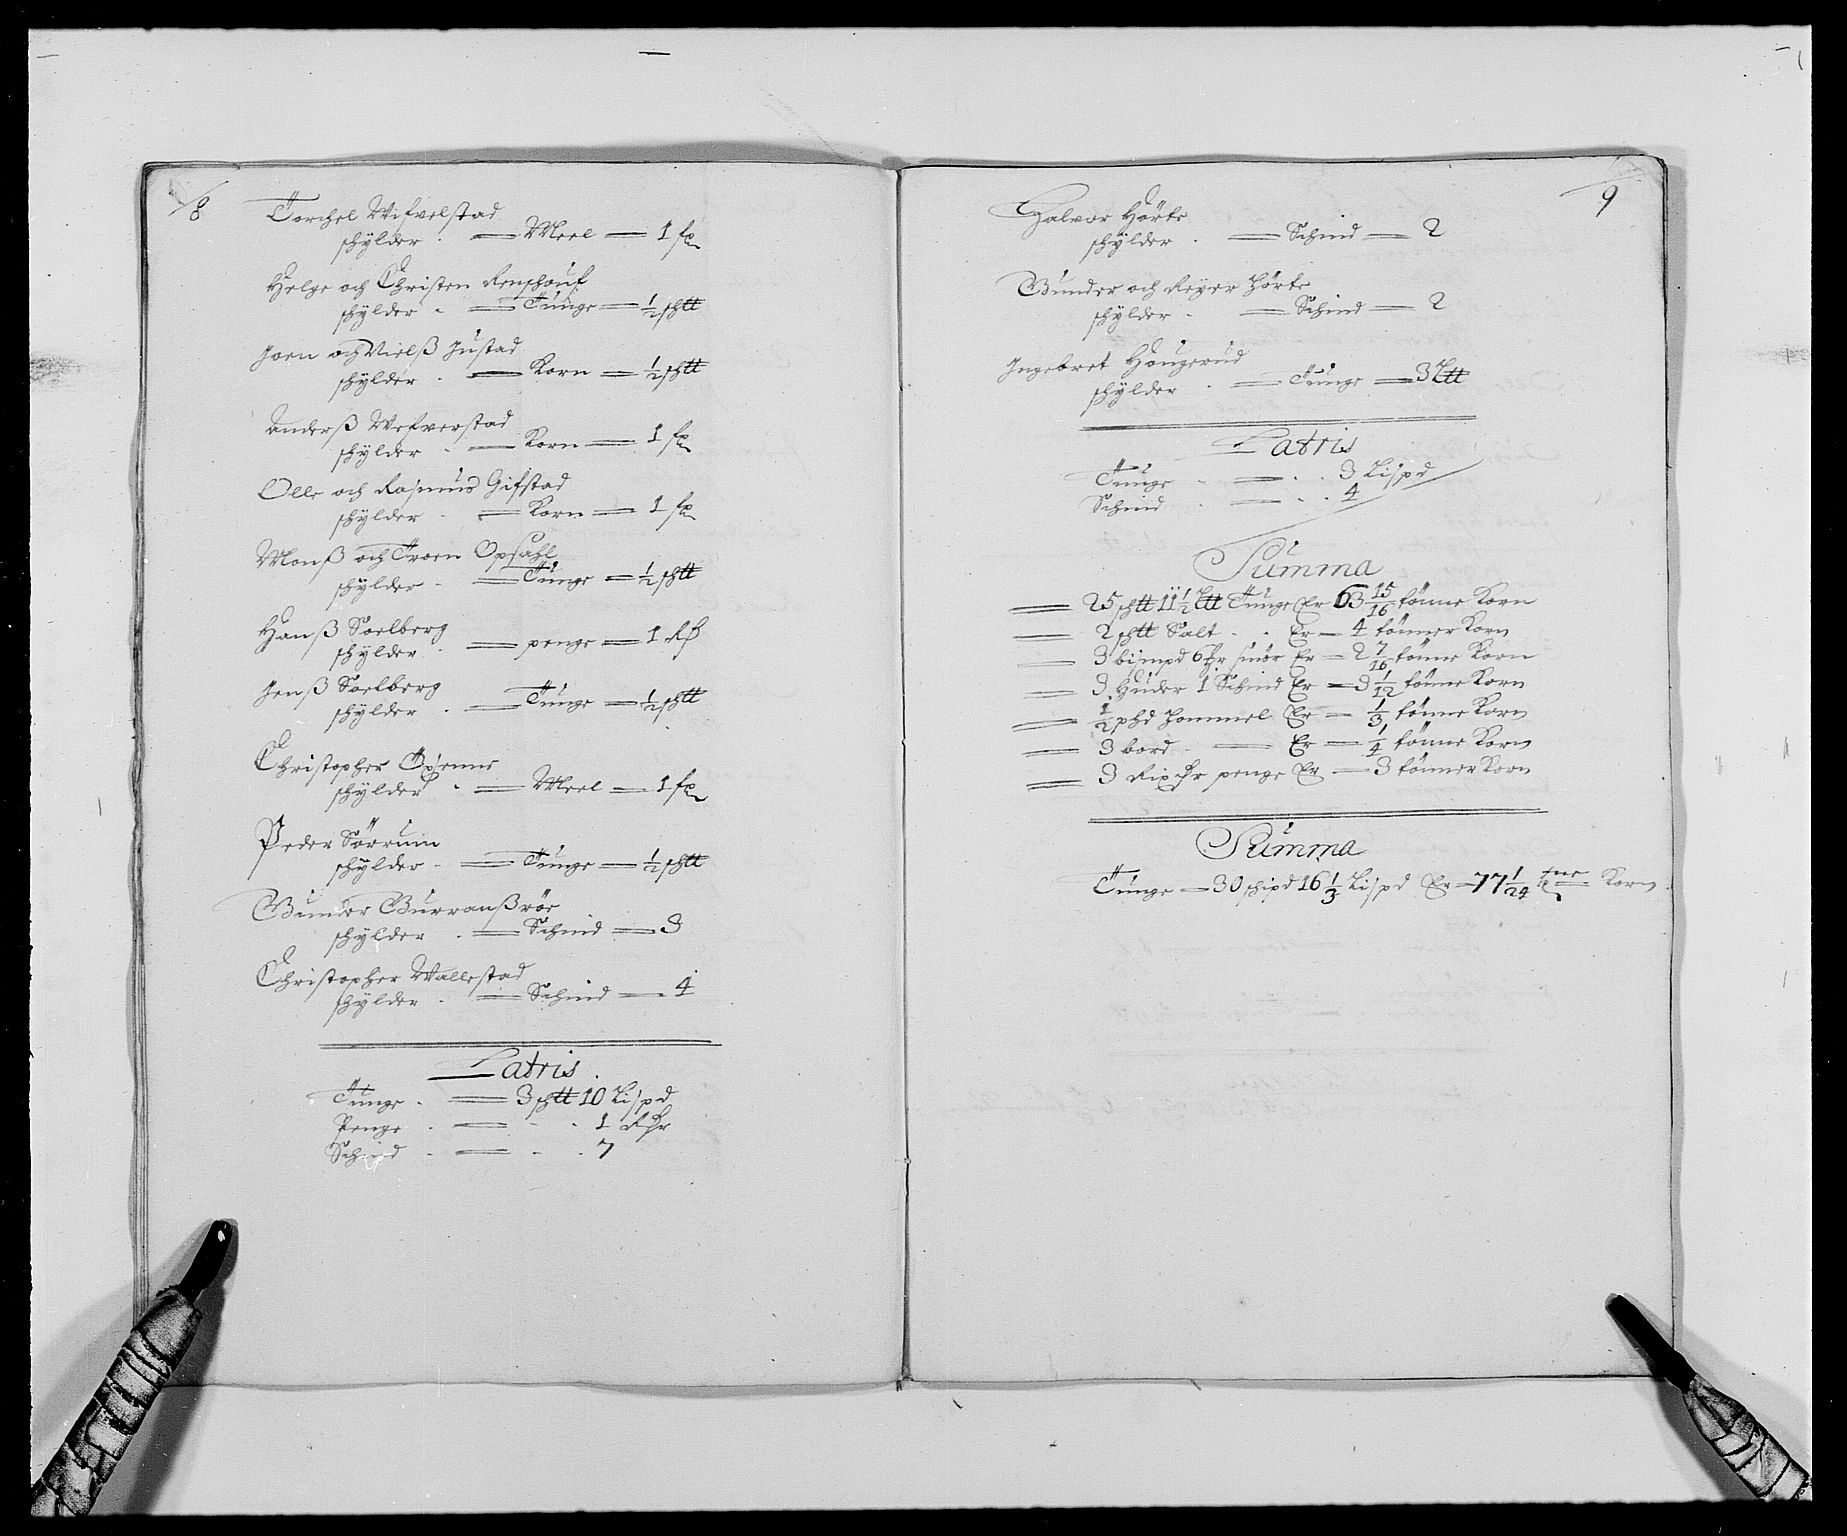 8
Torchel Wifvelstad
schÿlder . Meel 1 fx
Helge och Christen Renshouf
schÿlder . Tunge ½ schtt
Joen och Nielß Justad
schÿlder . Korn ½ schtt
Anderß Wefverstad
schÿlder . Korn 1 fx
Olle och Rasmus Gifstad
schÿlder . Korn 1 fx
Monß och Troen Opsahl
schÿlder . Tunge ½ schtt
Hanß Soelberg
schÿlder . penge 1 Rß
Jenß Soelberg
schÿlder . Tunge ½ schtt
Christopher Opsenne
schÿlder . Meel 1 fx
Peder Sørrum
schÿlder . Tunge ½ schtt
Gunder Gurranßrøe
schÿlder . Schind 3
Christopher Wallestad
schÿlder . Schind 4
Latris
Tunge . 3 schtt 10 Lispd
Penge . 1 Rdr
Schind . 7
9
Halvor Hørte
schÿlder . Schind 2
Gunder och Reyer Hørte
schÿlder . Schind 2
Ingebret Hougerud
schÿlder . Tunge 3 Ltt
Latris
Tunge . 3 Lispd
Schind . 4
Summa
25 schtt 11½ Ltt Tunge Er 63 15/16 tønne Korn
2 schtt Salt . . Er 4 tønner Korn
3 bismpd 6 smør Er 2 7/16 tønne Korn
3 Huder 1 Schind Er 3 1/12 tønne Korn
½ phd hommel Er 1/3 tønne Korn
3 bord . Er 1/4 tønne Korn
3 Rixdr penge Er 3 tønner Korn
Summa
Tunge 30 schipd 16 1/3 Lispd Er 77 1/24 tne Korn